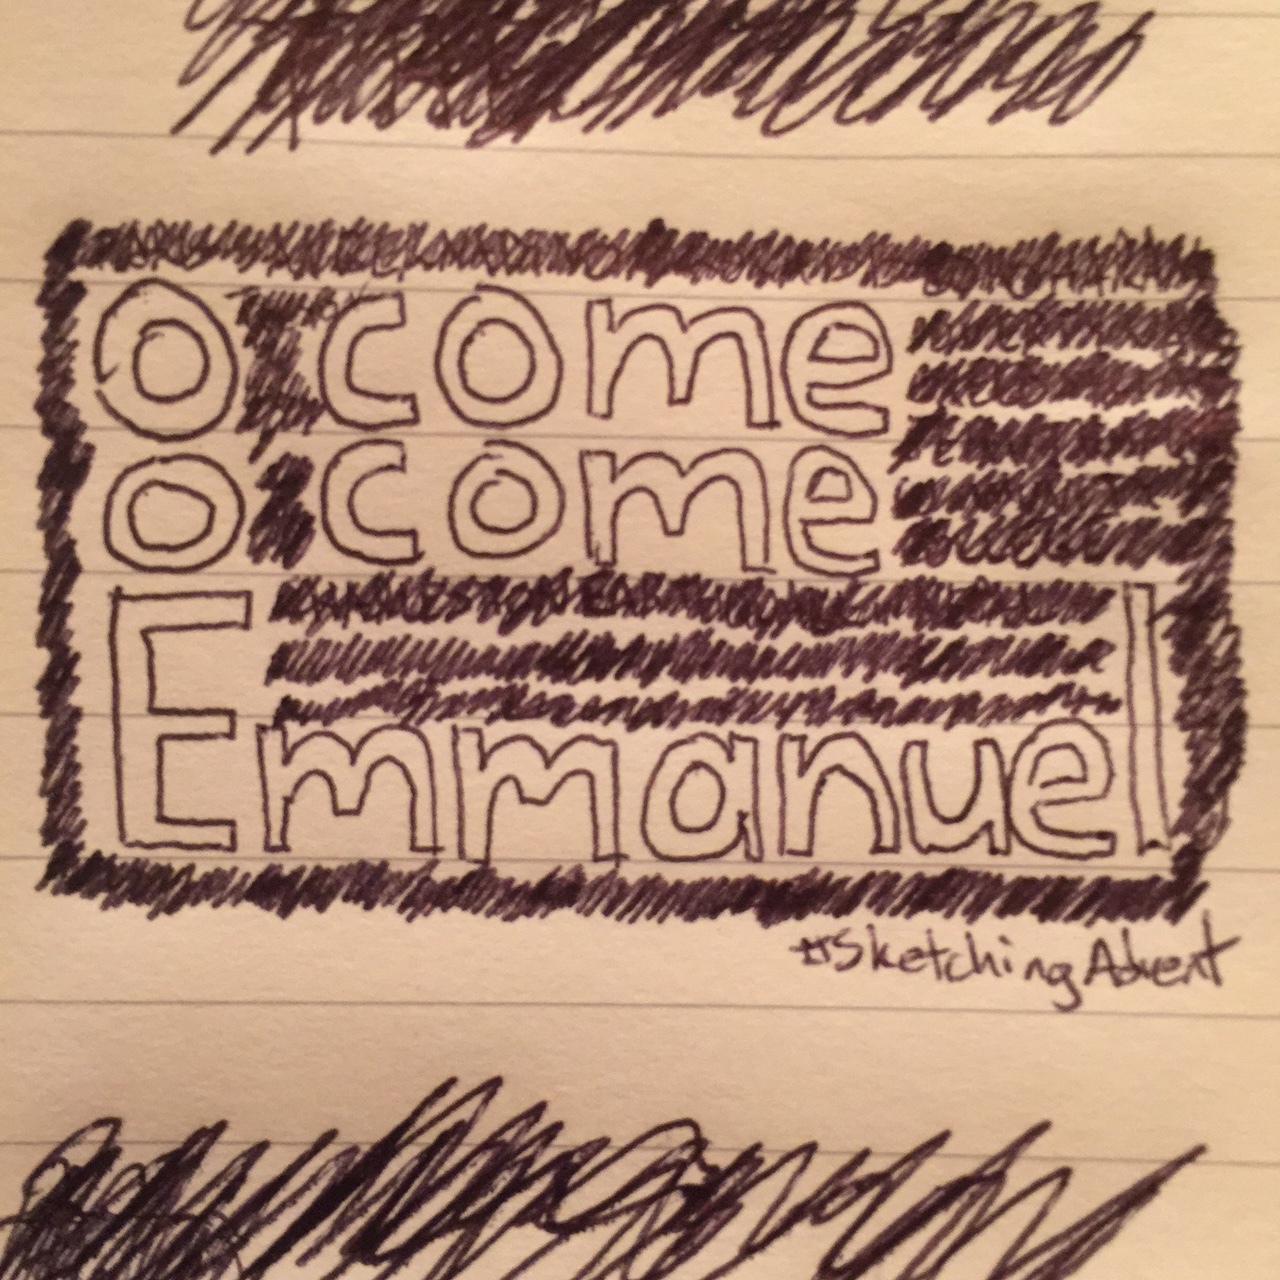 o come
o come
Emmanuel
#SketchingAdvent